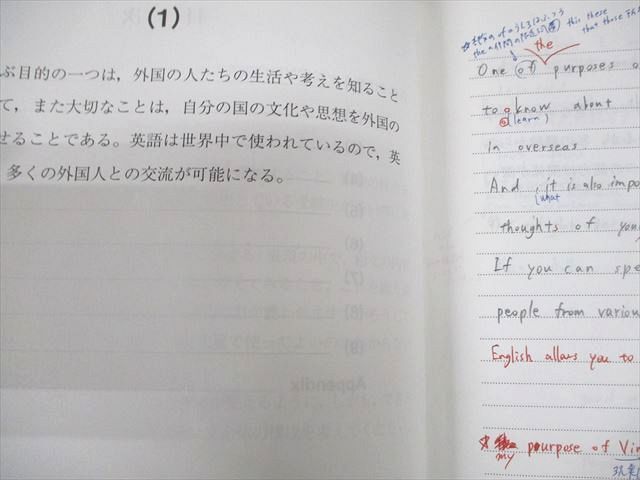 (1)
ぶ目的の一つは，外国の人たちの生活や考えを知ること
て，また大切なことは，自分の国の文化や思想を外国の
せることである。英語は世界中で使われているので，英
多くの外国人との交流が可能になる。
this these
that those
the
One of purposes o
to know about
(learn)
in overseas
And , it is also impo
what
thoughts of you
If you can spe
people from variou
English allows you to
my purpose of
Appendix